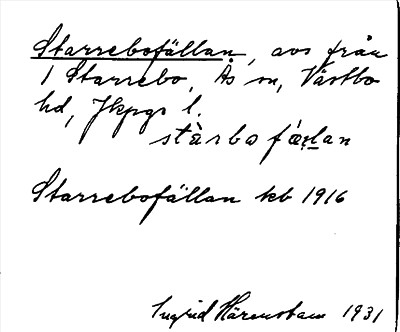 Starrebofällan, avs från
1 Starrebo, Ås sn, Västbo
hd, Jkpgs l.
stàrbofæ̀lan
Starrebofällan kb 1916
Ingrid Härenstam 1931